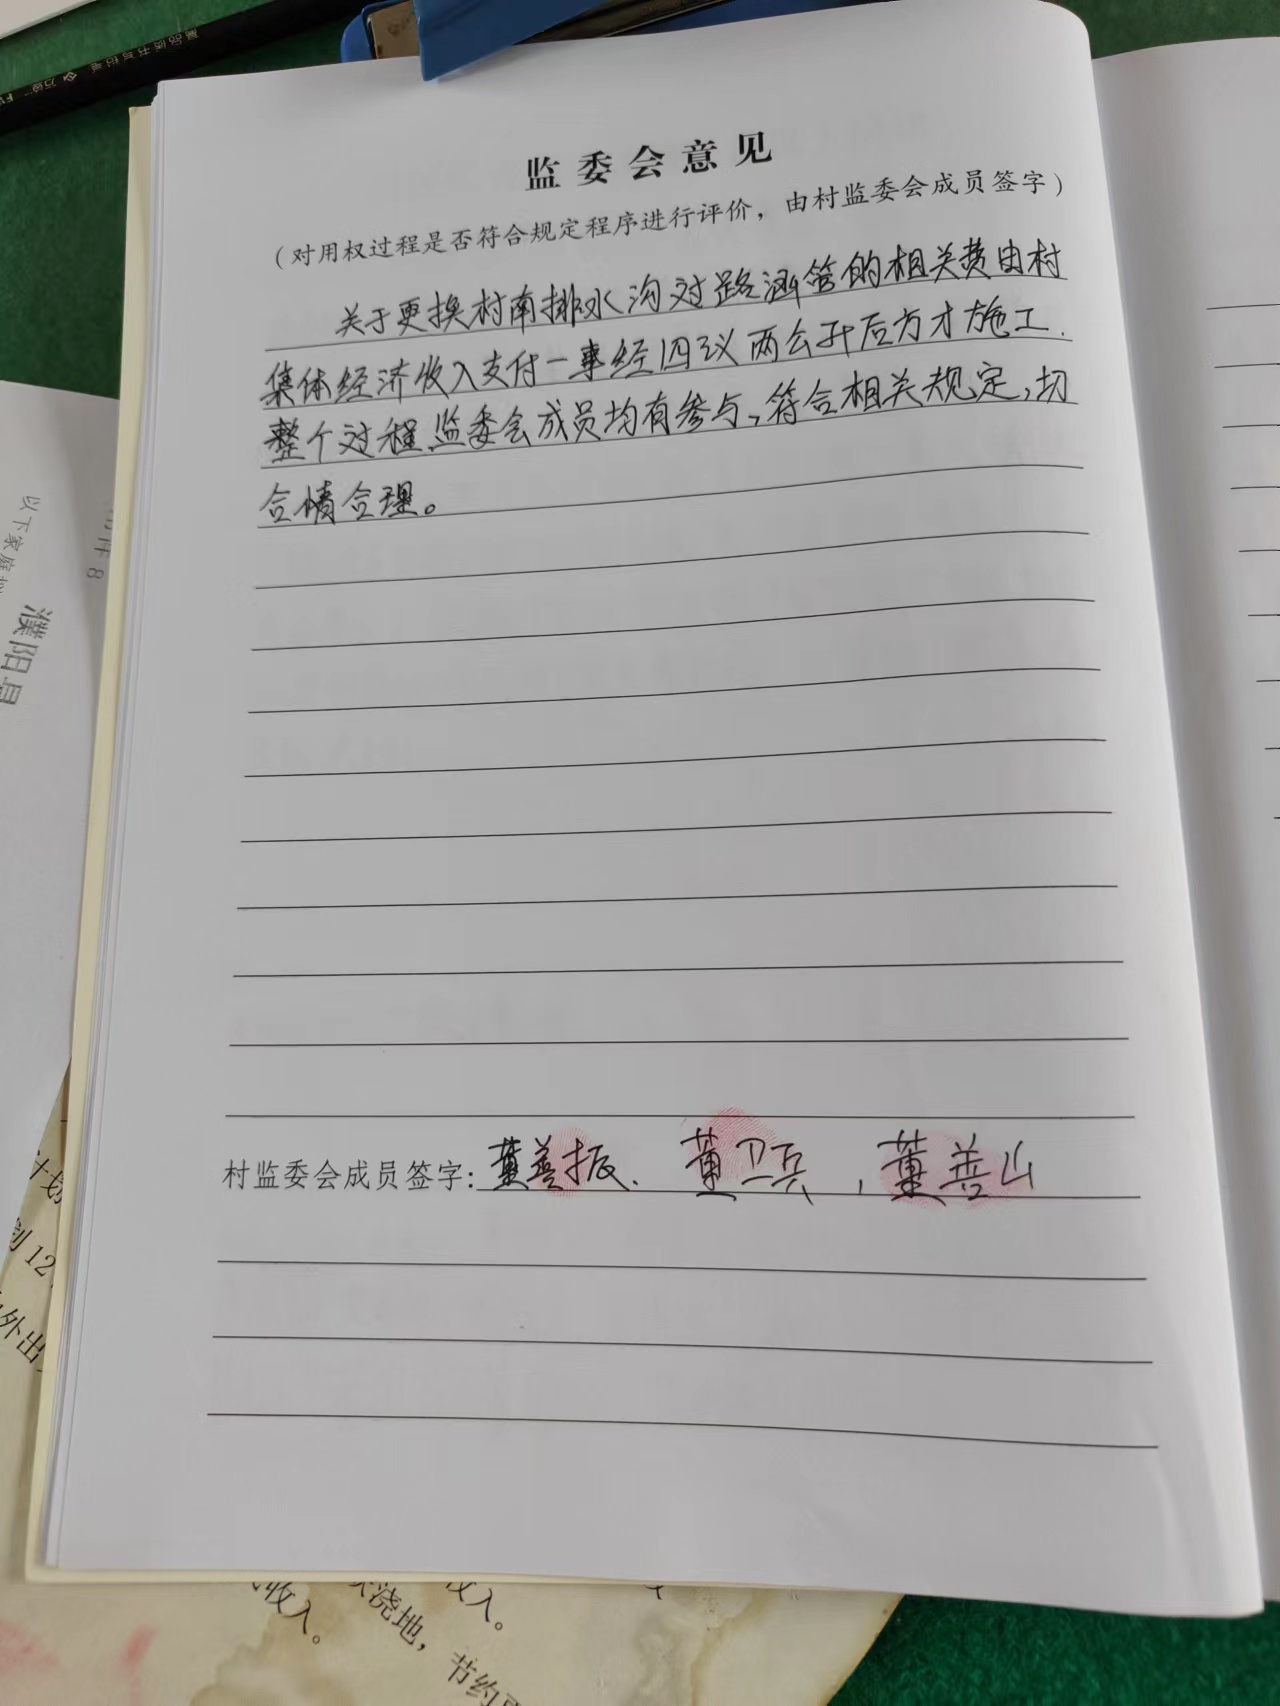 监委会意见
（对用权过程是否符合规定程序进行评价，由村监委会成员签字）
关于更换村南排水沟对路涵管的相关费由村
集体经济收入支付一事经四议两公开后方才施工.
整个过程监委会成员均有参与,符合相关规定,切
合情合理。
村监委会成员签字:董善振、董卫兵,董善山
附件8
以下家庭
濮阳县
计划
划12
外出
收入。
浇地，节约
收入。